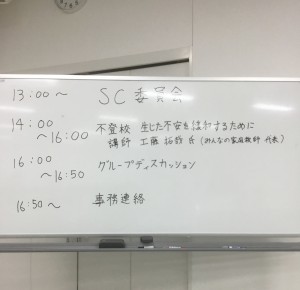 13:00～ SC委員会
14:00
～16:00 不登校 生じた不安を緩和するために
講師 工藤 拓哉 氏 (みんなの家庭教師 代表)
16:00
～16:50 グループディスカッション
16:50～ 事務連絡